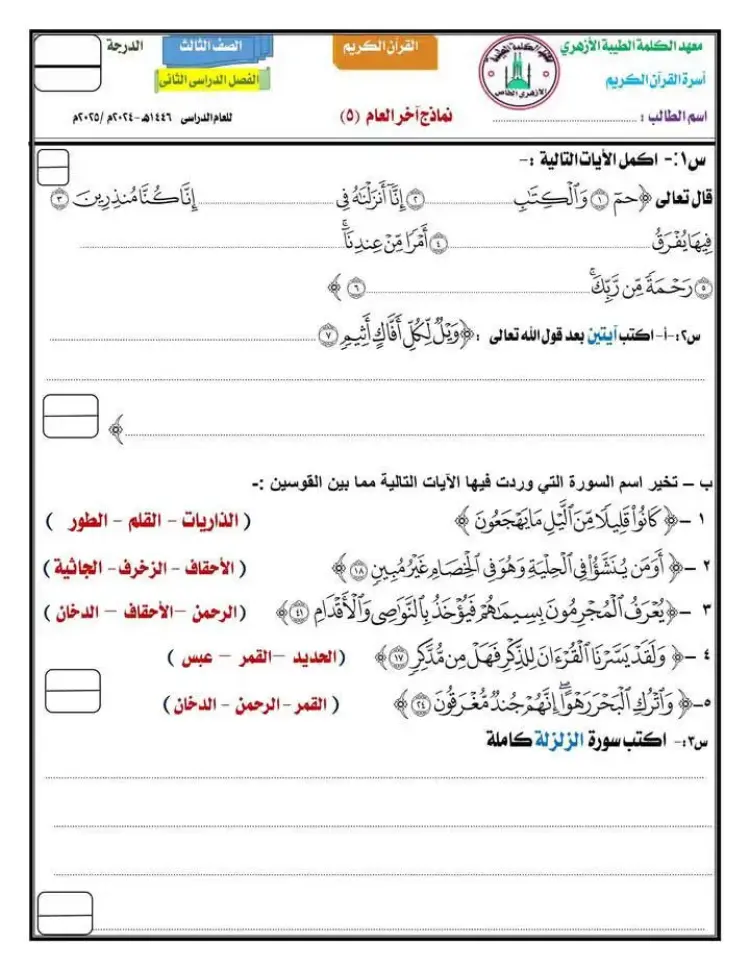 معهد الكلمة الطيبة الأزهري
القرآن الكريم
الصف الثالث
الدرجة
أسرة القرآن الكريم
الفصل الدراسى الثانى
اسم الطالب :
نماذج آخر العام (٥)
للعام الدراسى ١٤٤٦هـ -٢٠٢٤م /٢٠٢٥م
س١:- اكمل الآيات التالية :-
قال تعالى ﴿حمٓ ١ وَٱلۡكِتَٰبِ ٢ إِنَّآ أَنزَلۡنَٰهُ فِى إِنَّا كُنَّا مُنذِرِينَ ٣
فِيهَا يُفۡرَقُ ٤ أَمۡرٗا مِّنۡ عِندِنَآۚ
٥ رَحۡمَةٗ مِّن رَّبِّكَۚ ٦ ﴾
س٢:-أ- اكتب آيتين بعد قول الله تعالى : ﴿وَيۡلٞ لِّكُلِّ أَفَّاكٍ أَثِيمٖ ٧
﴾
ب – تخير اسم السورة التي وردت فيها الآيات التالية مما بين القوسين :-
١ -﴿ كَانُواْ قَلِيلٗا مِّنَ ٱلَّيۡلِ مَا يَهۡجَعُونَ ﴾ ( الذاريات - القلم - الطور )
٢ -﴿ أَوَمَن يُنَشَّؤُاْ فِى ٱلۡحِلۡيَةِ وَهُوَ فِى ٱلۡخِصَامِ غَيۡرُ مُبِينٖ ١٨ ﴾ ( الأحقاف - الزخرف- الجاثية )
٣ -﴿يُعۡرَفُ ٱلۡمُجۡرِمُونَ بِسِيمَٰهُمۡ فَيُؤۡخَذُ بِٱلنَّوَٰصِى وَٱلۡأَقۡدَامِ ٤١ ﴾ ( الرحمن -الأحقاف – الدخان )
٤ -﴿ وَلَقَدۡ يَسَّرۡنَا ٱلۡقُرۡءَانَ لِلذِّكۡرِ فَهَلۡ مِن مُّدَّكِرٖ ١٧ ﴾ (الحديد -القمر – عبس )
٥-﴿ وَٱتۡرُكِ ٱلۡبَحۡرَ رَهۡوًاۖ إِنَّهُمۡ جُندٞ مُّغۡرَقُونَ ٢٤ ﴾ ( القمر -الرحمن - الدخان )
س٣:- اكتب سورة الزلزلة كاملة